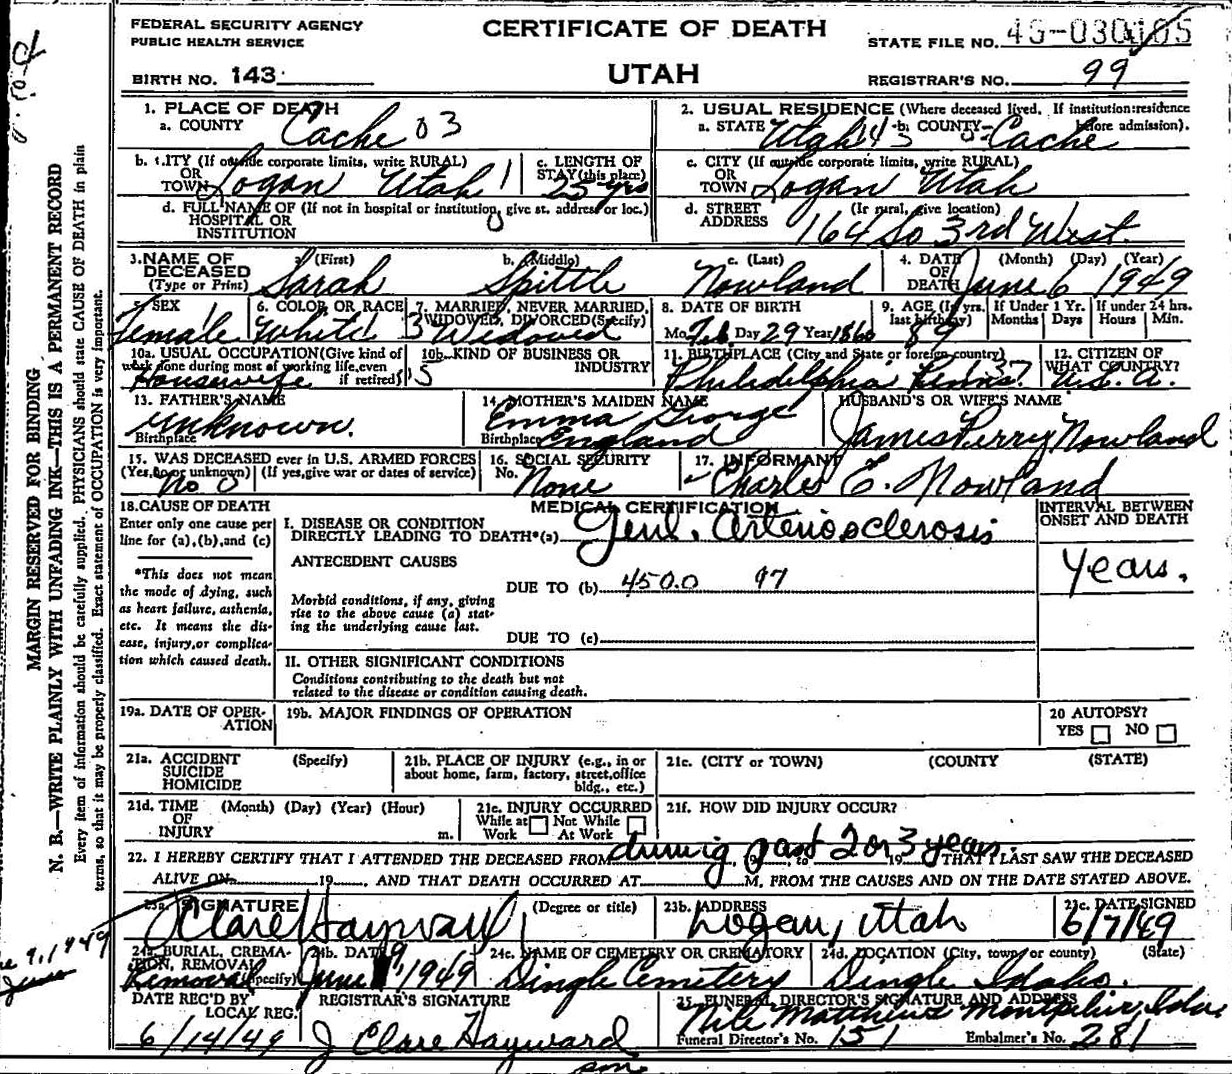 FEDERAL SECURITY AGENCY
PUBLIC HEALTH SERVICE
CERTIFICATE OF DEATH
STATE FILE NO.
BIRTH NO. 143
UTAH
REGISTRAR'S NO. 99
1. PLACE OF DEATH
a. COUNTY Cache 03
2. USUAL RESIDENCE (Where deceased lived. If institution: residence before admission).
a. STATE Utah 43 b. COUNTY 3-Cache
b. CITY (If outside corporate limits, write RURAL)
OR
TOWN Logan Utah 1
c. LENGTH OF
STAY (this place)
25 yrs
c. CITY (If outside corporate limits, write RURAL)
OR
TOWN Logan Utah
d. FULL NAME OF (If not in hospital or institution, give st. address or loc.)
HOSPITAL OR
INSTITUTION
0
d. STREET (If rural, give location)
ADDRESS 164 So 3rd West.
3. NAME OF
DECEASED
(Type or Print)
a. (First) Sarah
b. (Middle) Spittle
c. (Last) Nowland
4. DATE (Month) (Day) (Year)
OF
DEATH June 6 1949
5. SEX
Female 1
6. COLOR OR RACE
White
7. MARRIED, NEVER MARRIED,
WIDOWED, DIVORCED (Specify)
3 Widowed
8. DATE OF BIRTH
Mo. Feb. Day 29 Year 1860
9. AGE (In yrs. last birthday)
89
If Under 1 Yr.
Months Days
If under 24 hrs.
Hours Min.
10a. USUAL OCCUPATION (Give kind of
work done during most of working life, even
if retired)
Housewife
10b. KIND OF BUSINESS OR
INDUSTRY
5
11. BIRTHPLACE (City and State or foreign country)
Philidelphia Penns 37
12. CITIZEN OF
WHAT COUNTRY?
U.S.A.
13. FATHER'S NAME
unknown.
Birthplace
14. MOTHER'S MAIDEN NAME
Emma George
Birthplace England
HUSBAND'S OR WIFE'S NAME
James Perry Nowland
15. WAS DECEASED ever in U.S. ARMED FORCES
(Yes, no or unknown) (If yes, give war or dates of service)
No 0
16. SOCIAL SECURITY
No. None
17. INFORMANT
Charles E. Nowland
18. CAUSE OF DEATH
Enter only one cause per
line for (a), (b), and (c)
*This does not mean
the mode of dying, such
as heart failure, asthenia,
etc. It means the dis-
ease, injury, or complica-
tion which caused death.
MEDICAL CERTIFICATION
I. DISEASE OR CONDITION
DIRECTLY LEADING TO DEATH*(a) Genl. arteriosclerosis
ANTECEDENT CAUSES
DUE TO (b) 450.0 97
Morbid conditions, if any, giving
rise to the above cause (a) stat-
ing the underlying cause last.
DUE TO (c)
II. OTHER SIGNIFICANT CONDITIONS
Conditions contributing to the death but not
related to the disease or condition causing death.
INTERVAL BETWEEN
ONSET AND DEATH
Years.
19a. DATE OF OPER-
ATION
19b. MAJOR FINDINGS OF OPERATION
20 AUTOPSY?
YES NO
21a. ACCIDENT (Specify)
SUICIDE
HOMICIDE
21b. PLACE OF INJURY (e.g., in or
about home, farm, factory, street, office
bldg., etc.)
21c. (CITY or TOWN) (COUNTY (STATE)
21d. TIME (Month) (Day) (Year) (Hour)
OF
INJURY m.
21e. INJURY OCCURRED
While at Not While
Work At Work
21f. HOW DID INJURY OCCUR?
22. I HEREBY CERTIFY THAT I ATTENDED THE DECEASED FROM during past 2 or 3 years. THAT I LAST SAW THE DECEASED
ALIVE ON 19 , AND THAT DEATH OCCURRED AT M, FROM THE CAUSES AND ON THE DATE STATED ABOVE.
23a. SIGNATURE (Degree or title)
J Clare Hayward
23b. ADDRESS
Logan, Utah
23c. DATE SIGNED
6/7/49
24a. BURIAL, CREMA-
TION, REMOVAL
(Specify)
Removal
24b. DATE
June 9, 1949
24c. NAME OF CEMETERY OR CREMATORY
Dingle Cemetery
24d. LOCATION (City, town, or county) (State)
Dingle Idaho.
DATE REC'D BY
LOCAL REG.
6/14/49
REGISTRAR'S SIGNATURE
J Clare Hayward
25. FUNERAL DIRECTOR'S SIGNATURE AND ADDRESS
Matthews Montpelier, Ida.
Funeral Director's No. 151 Embalmer's No. 281
MARGIN RESERVED FOR BINDING
N. B.—WRITE PLAINLY WITH UNFADING INK—THIS IS A PERMANENT RECORD
Every item of information should be carefully supplied. PHYSICIANS should state CAUSE OF DEATH in plain
terms, so that it may be properly classified. Exact statement of OCCUPATION is very important.